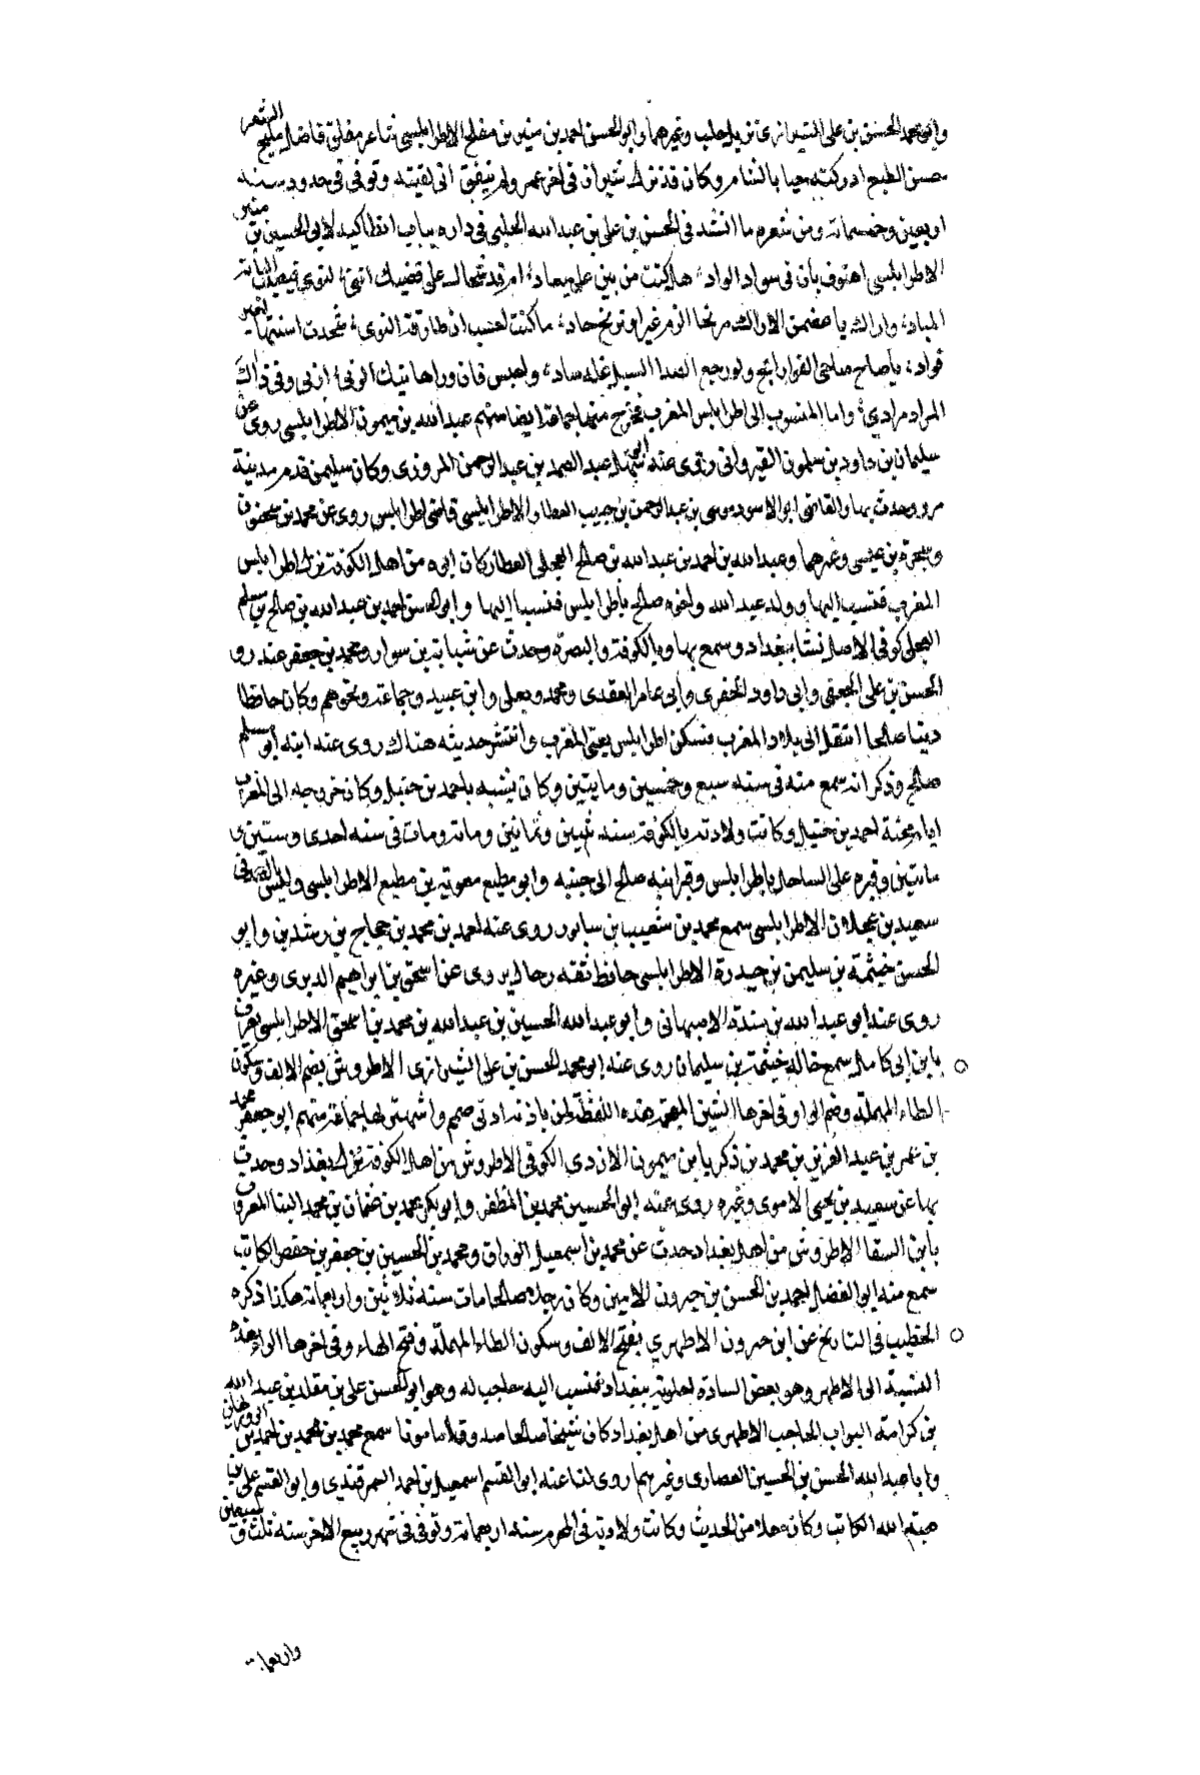 وابو محمد الحسن بن على الشيرازى نزيل حلب وغيرهما وابو الحسن احمد بن منير بن مفلح الاطرابلسى شاعر مفلق فاضل مليح الشعر
حسن الطبع ادركته حيا بالشام وكان قد نزل شيزر فى اخر عمره ولم يتفق انى لقيته وتوفى فى حدود سنه
اربعين وخمسمائة ومن شعره ما انشدنى الحسن بن على بن عبد الله الحلبى فى داره بباب انطاكية لابى الحسين بن منير
الاطرابلسى
المراد مرادي واما المنسوب الى اطرابلس المغرب فخرج منها جماعة ايضا منهم عبد الله بن ميمون الاطرابلسى روى عن
سليمان بن داود بن سلمون القيروانى روى عنه ابو سهل عبد الصمد بن عبد الرحمن المروزى وكان سليمن قدم مدينة
مرو وحدث بها والقاضى ابو الاسود موسى بن عبد الرحمن بن حبيب العطار الاطرابلسى قاضى اطرابلس روى عن محمد بن سحنون
وشجرة بن عيسى وغيرهما وعبد الله بن احمد بن عبد الله بن صالح العجلى العطار كان ابوه من اهل الكوفة نزل اطرابلس
المغرب فنسب اليها وولده عبد الله واخوه صالح باطرابلس فنسبا اليها وابو الحسن احمد بن عبد الله بن صالح بن مسلم
العجلى كوفى الاصل نشا ببغداد وسمع بها وبالكوفة والبصرة وحدث عن شبابة بن سوار ومحمد بن جعفر غندر و
الحسن بن على الجعفى وابى داود الحفرى وابى عامر العقدى ومحمد ويعلى وابن عبيد وجماعة ونحوهم وكان حافظا
دينا صالحا انتقل الى بلاد المغرب فسكن اطرابلس يعنى المغرب وانتشر حديثه هناك روى عنه ابنه ابو مسلم
صالح وذكر انه سمع منه فى سنه سبع وخمسين ومايتين وكان يشبه باحمد بن حنبل وكان خروجه الى المغرب
ايام محنة احمد بن حنبل وكانت ولادته بالكوفة سنه ثمنين وثمانين ومائة ومات فى سنه احدى وستين و
مائتين وقبره على الساحل باطرابلس وقبر ابنه صالح الى جنبه وابو مطيع معوية بن مطيع الاطرابلسى
سعيد بن عجلان الاطرابلسى سمع محمد بن شعيب بن سابور روى عنه احمد بن محمد بن حجاج بن رشدين وابو
الحسن خيثمة بن سليمن بن حيدرة الاطرابلسى حافظ ثقه رحال يروى عن اسحق بن ابراهيم الدبرى وغيره
روى عنه ابو عبد الله بن مندة الاصبهانى وابو عبد الله الحسين بن عبد الله بن محمد بن اسحق الاطرابلسى يعرف
بابن ابى كامل سمع خاله خيثمة بن سليمان روى عنه ابو محمد الحسن بن على الشيرازى الاطروش بضم الالف وسكون
الطاء المهملة وضم الراو فى اخرها الشين المعجمة هذه اللفظة لمن باذنه ادنى صمم واشتهر بها جماعة منهم ابو جعفر محمد
بن عمر بن عبد العزيز بن محمد بن ذكريا بن ميمون الازدى الكوفى الاطروش من اهل الكوفة نزل بغداد وحدث
بها عن سعيد بن يحيى الاموى وغيره روى عنه ابو الحسين محمد بن المظفر وابو بكر محمد بن عثمان بن محمد البنا المعروف
بابن السقا الاطروش من اهل بغداد حدث عن محمد بن اسمعيل الوراق ومحمد بن الحسين بن جعفر بن حفص الكاتب
سمع منه ابو الفضل احمد بن الحسن بن خيرون الامين وكان رجلا صالحا مات سنه ثلاثين واربعمائة هكذا ذكره
الخطيب فى التاريخ عن ابن خيرون الاطهري بفتح الالف وسكون الطاء المهملة وفتح الهاء وفى اخرها الراء هذه
النسبة الى الاطهر وهو بعض السادة العلوية ببغداد فنسب اليه حاجب له وهو ابو الحسن على بن مقلد بن عبد الله
بن كرامة البواب الحاجب الاطهرى من اهل بغداد كان شيخا صالحا صدوقا مامونا سمع محمد بن محمد بن احمد بن الروزبهانى
وابا عبد الله الحسن بن الحسين الغضارى وغيرهم روى لنا عنه ابو القسم اسمعيل بن احمد السمرقندى وابو القسم على بن
هبة الله الكاتب وكان مقلا من الحديث وكانت ولادته فى المحرم سنه اربعمائة وتوفى فى شهر ربيع الاخر سنه ثلث و سبعين
واربعمائة